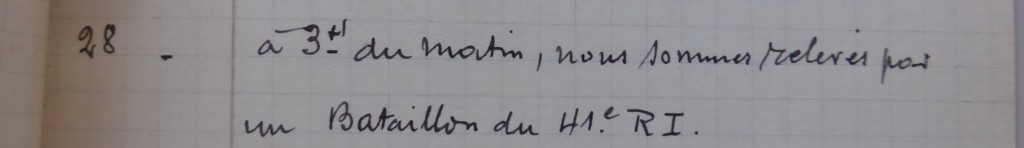 28 - à 3H du matin, nous sommes relevés par
un Bataillon du 41.e R I.